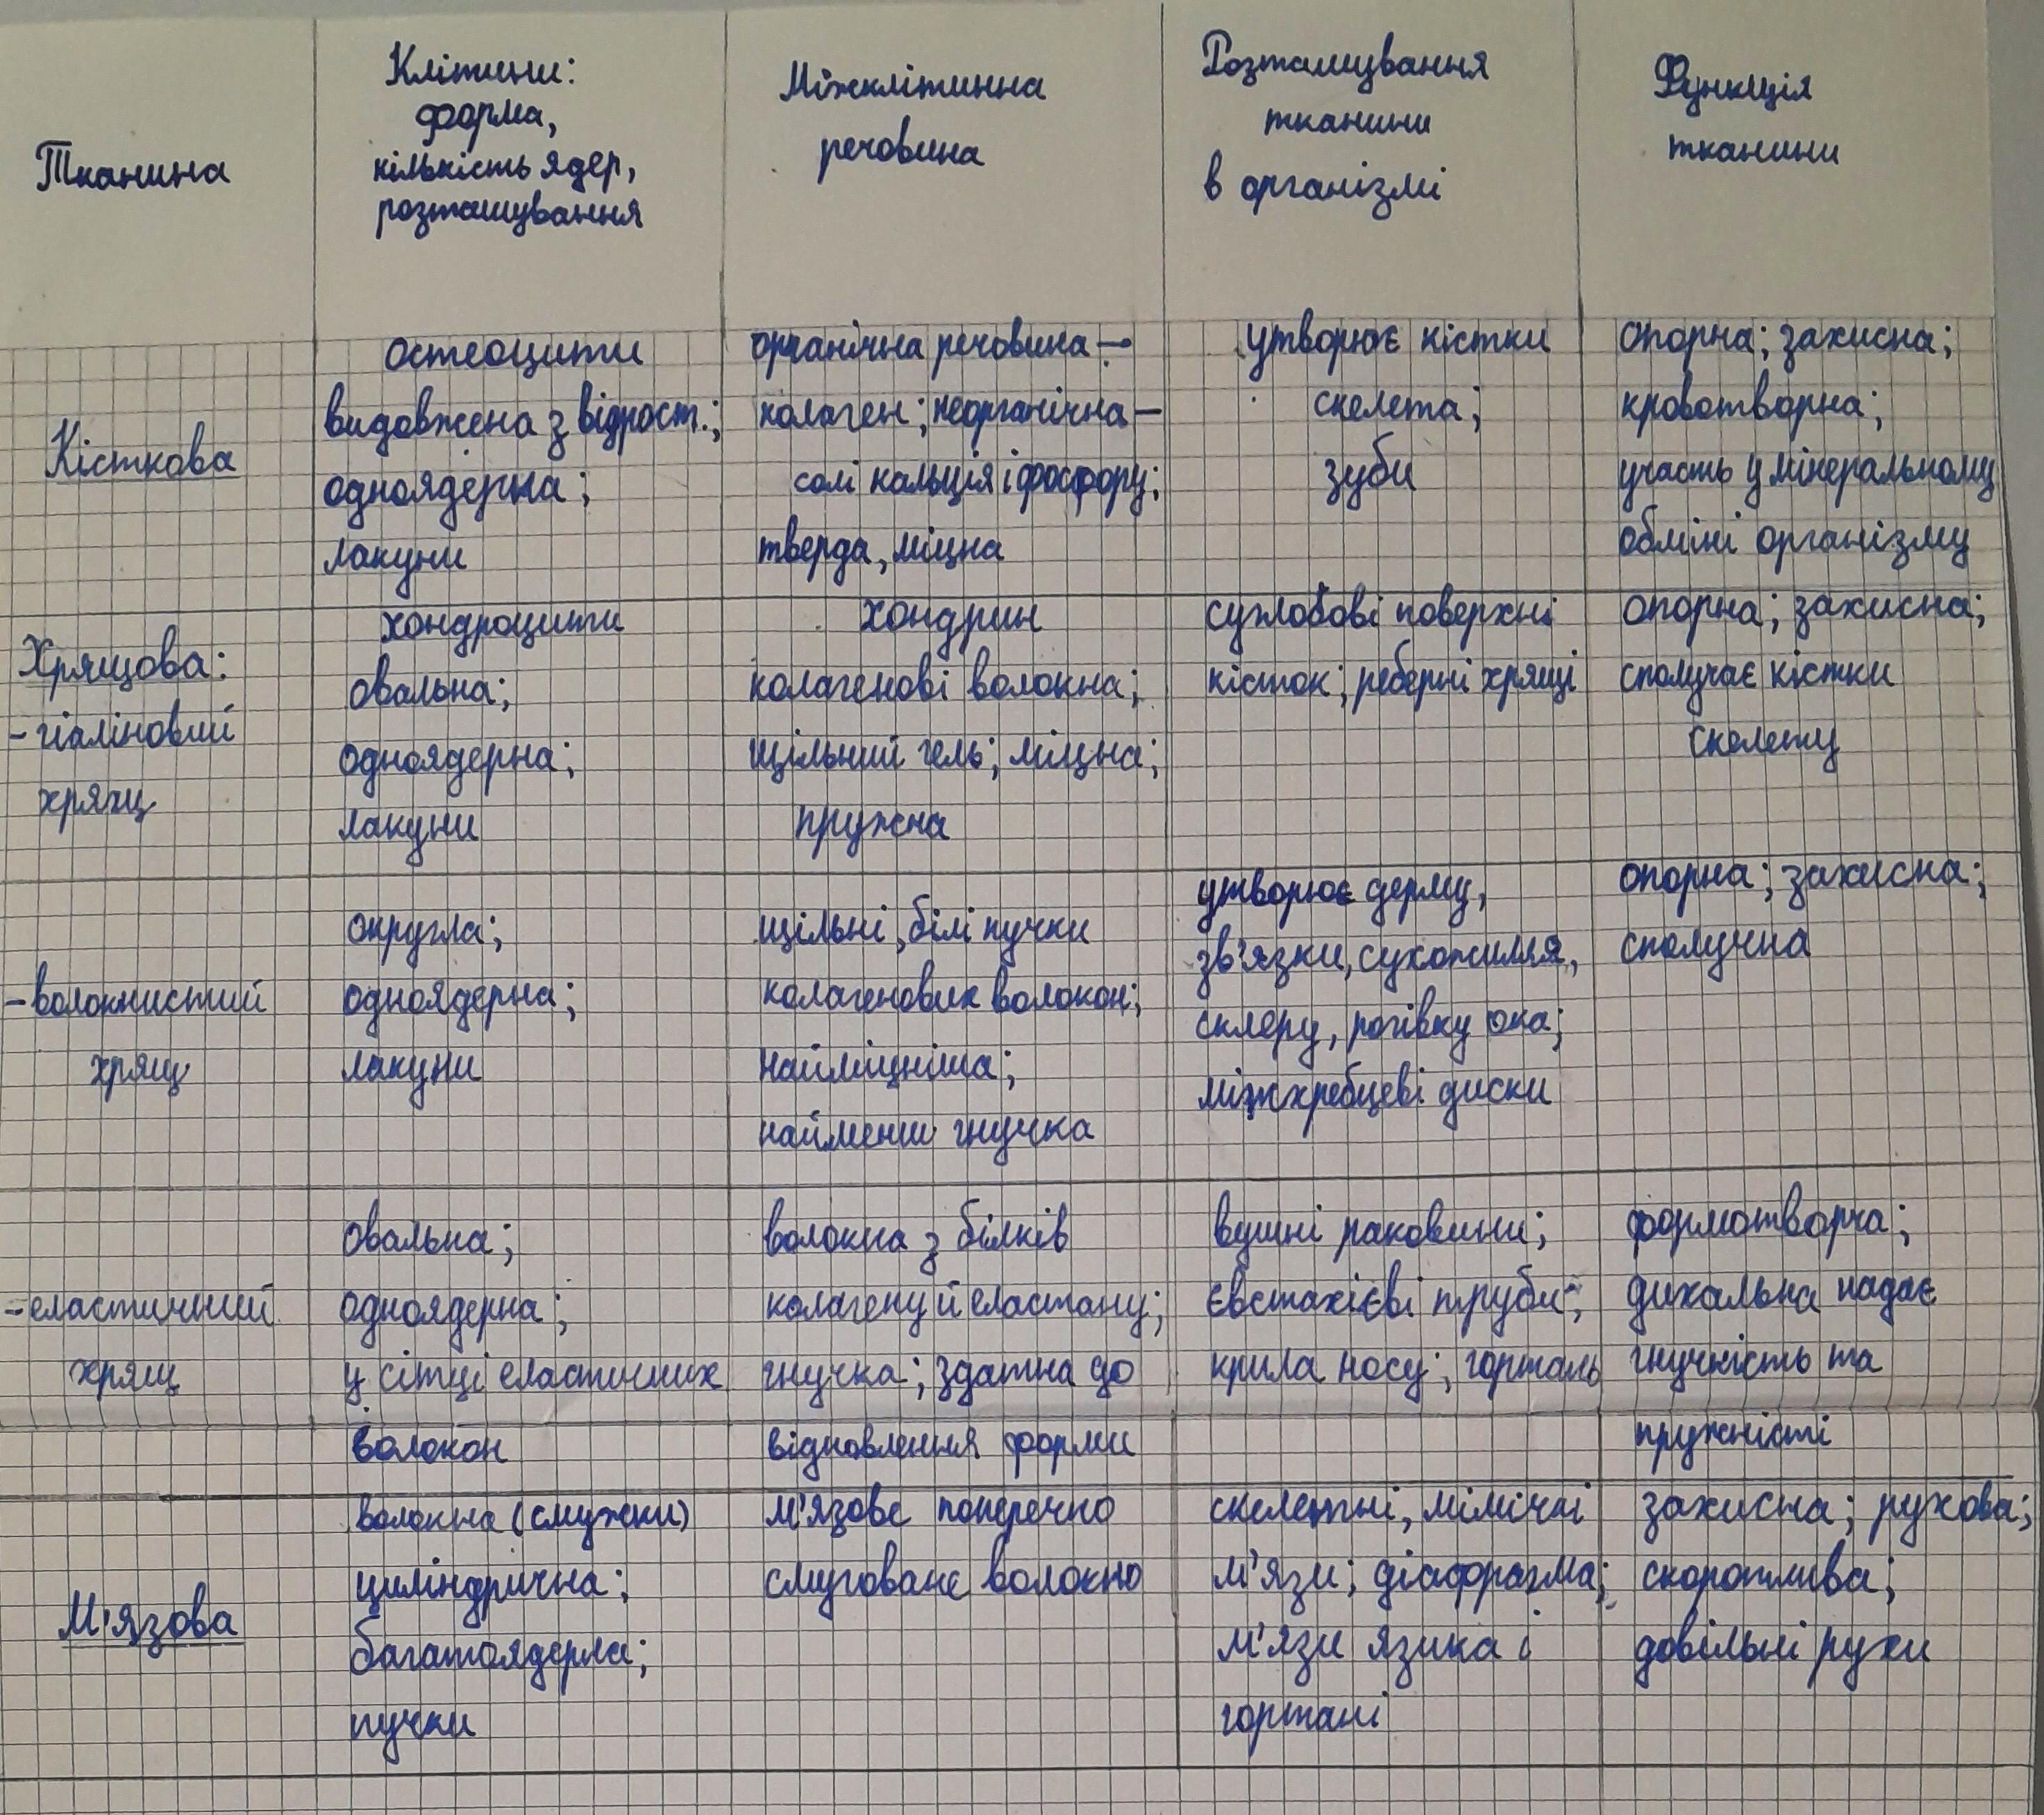 Тканина
Клітини:
форма,
кількість ядер,
розташування
Міжклітинна
речовина
Розташування
тканини
в організмі
Функція
тканини
Кісткова
остеоцити
видовжена з відрост.;
одноядерна;
лакуни
органічна речовина –
колаген; неорганічна –
солі кальція і фосфору;
тверда, міцна
утворює кістки
скелета;
зуби
опорна; захисна;
кровотворна;
участь у мінеральному
обміні організму
Хрящова:
- гіаліновий
хрящ
хондроцити
овальна;
одноядерна;
лакуни
хондрин
колагенові волокна;
щільний гель; міцна;
пружна
суглобові поверхні
кісток; реберні хрящі
опорна; захисна;
сполучає кістки
скелету
- волокнистий
хрящ
округла;
одноядерна;
лакуни
щільні, білі пучки
колагенових волокон;
найміцніша;
найменш гнучка
утворює дерму,
зв'язки, сухожилля,
склеру, рогівку ока;
міжхребцеві диски
опорна; захисна;
сполучна
- еластичний
хрящ
овальна;
одноядерна;
у сітці еластичних
волокон
волокна з білків
колагену й еластану;
гнучка; здатна до
відновлення форми
вушні раковини;
євстахієві труби;
крила носу; гортань
формотворча;
дихальна надає
гнучкість та
пружність
М'язова
волокна (смужки)
циліндрична;
багатоядерна;
пучки
м'язове поперечно
смуговане волокно
скелетні, мімічні
м'язи; діафрагма;
м'язи язика і
гортані
захисна; рухова;
скоротлива;
довільні рухи